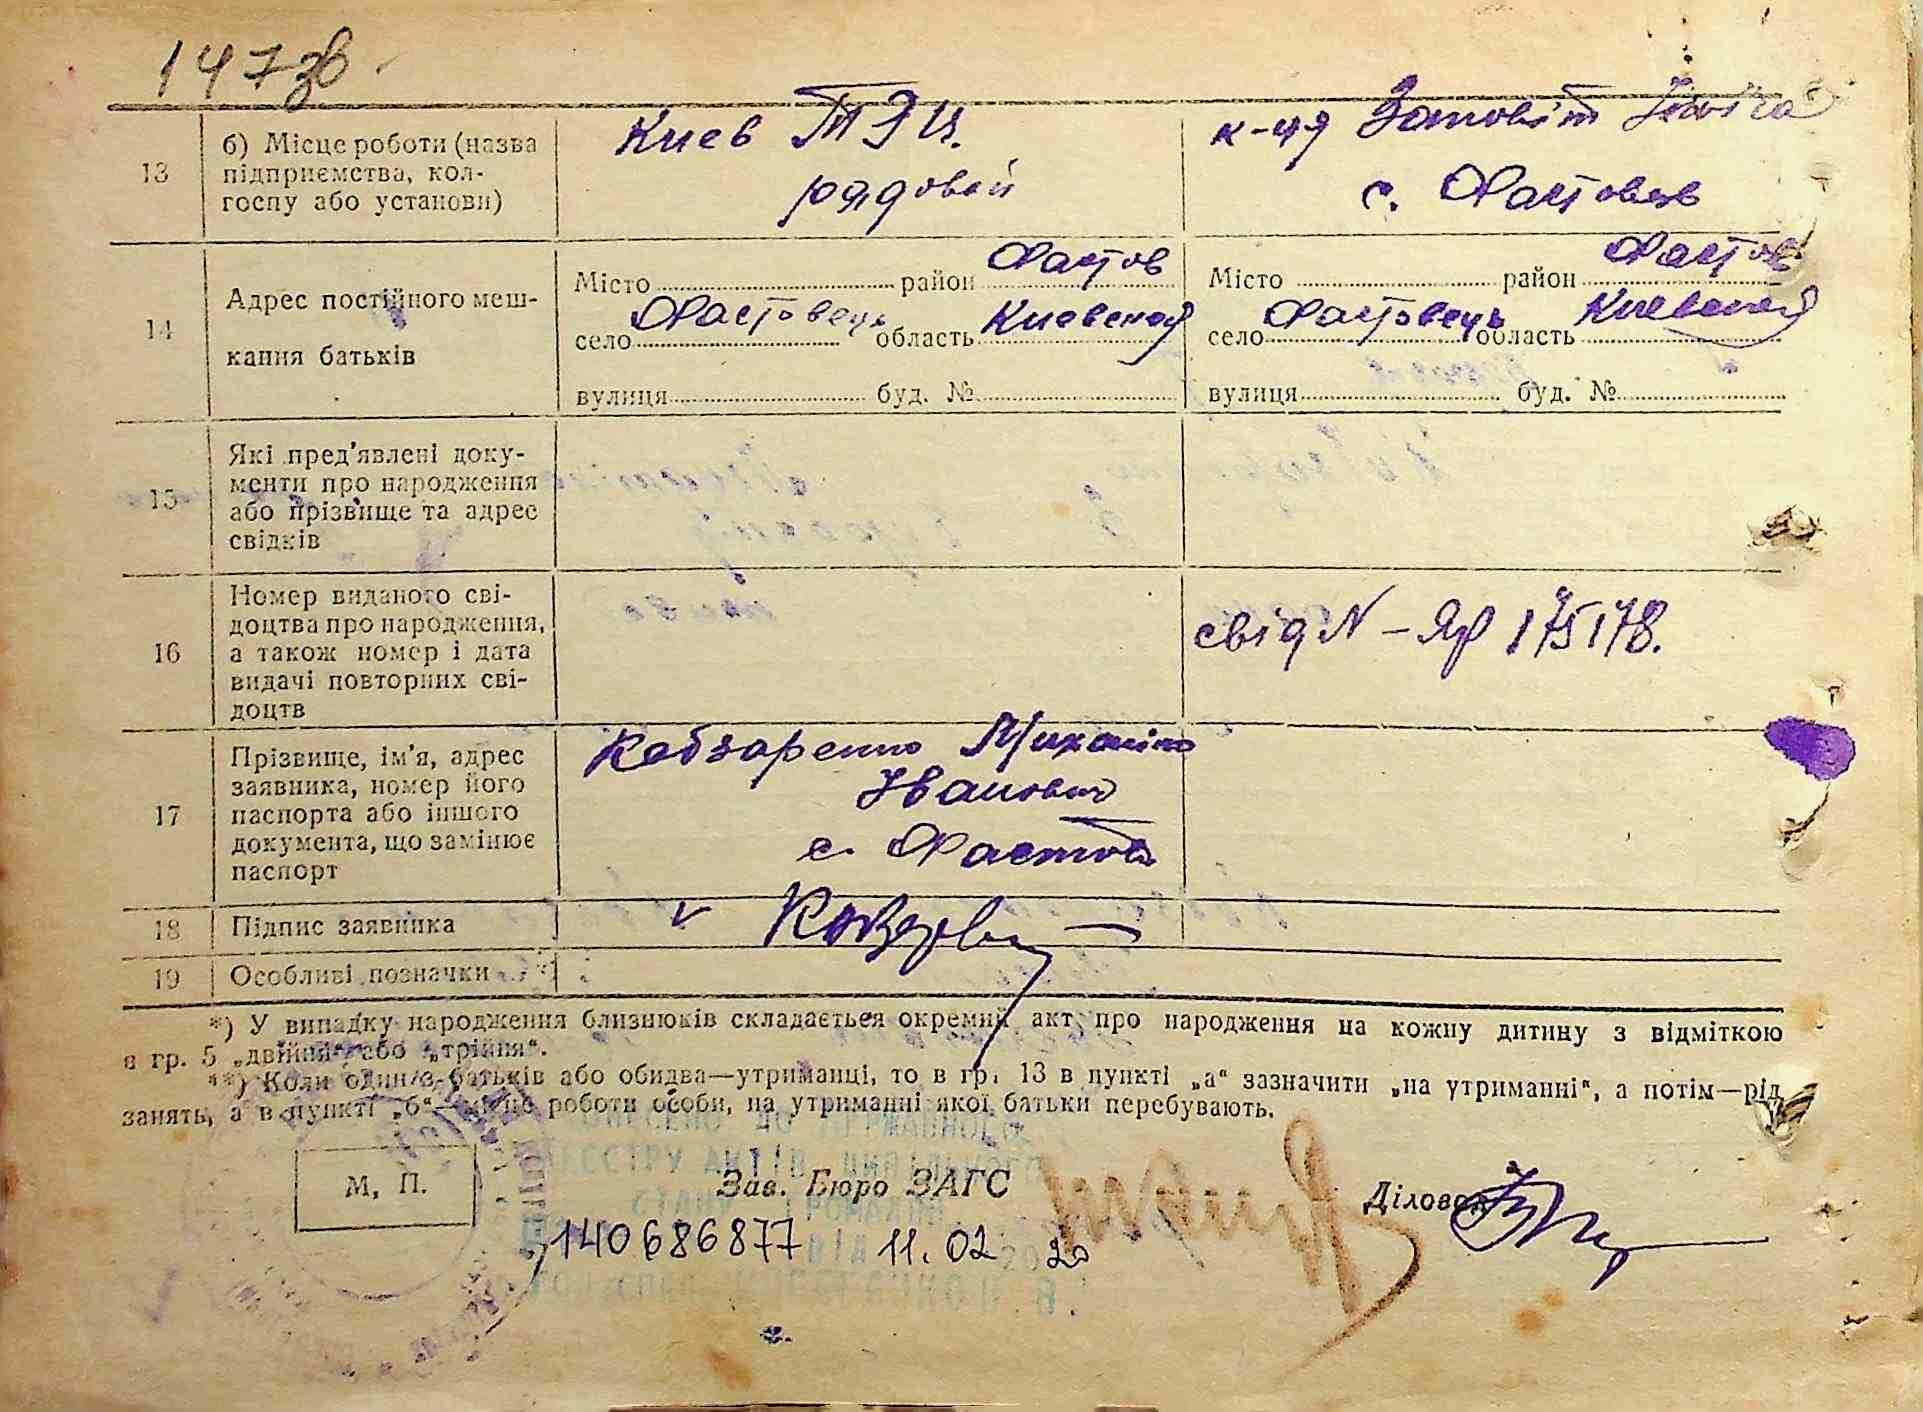 147зв
13
б) Місце роботи (назва
підприємства, кол-
госпу або установи)
Киев ТЭЦ.
рядовой
к-ця Заповіт Ілліча
с. Фастовець
14
Адрес постійного меш-
кання батьків
Місто район Фастов
село Фастовець область Киевской
вулиця буд. №
Місто район Фастов
село Фастовець область Киевской
вулиця буд. №
15
Які пред'явлені доку-
менти про народження
або прізвище та адрес
свідків
16
Номер виданого сві-
доцтва про народження,
а також номер і дата
видачі повторних сві-
доцтв
свід N – Яр 175178.
17
Прізвище, ім'я, адрес
заявника, номер його
паспорта або іншого
документа, що замінює
паспорт
Кобзаренко Михайло
Іванович
с. Фастов
18
Підпис заявника
19
Особливі позначки
*) У випадку народження близнюків складається окремий акт про народження на кожну дитину з відміткою
в гр. 5 „двійня“ або „трійня“.
**) Коли один з батьків або обидва—утриманці, то в гр. 13 в пункті „а“ зазначити „на утриманні“, а потім—рід
занять, а в пункті „б“—місце роботи особи, на утриманні якої батьки перебувають.
ВНЕСЕНО ДО ДЕРЖАВНОГО
РЕЄСТРУ АКТІВ ЦИВІЛЬНОГО
СТАНУ ГРОМАДЯН
М. П.
Зав. Бюро ЗАГС
Діловод
140686877 від 11.02 2020